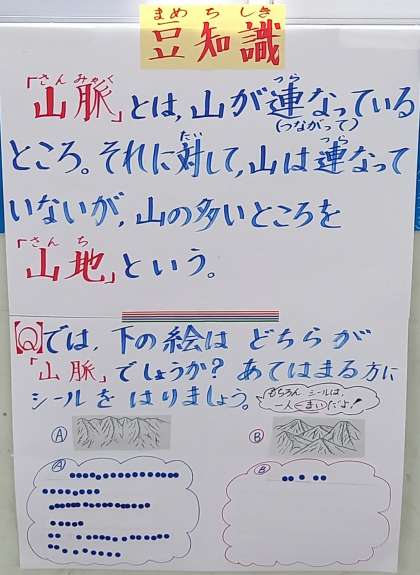 豆知識
まめちしき
「山脈」とは、山が連なっている
さんみゃく
つら
(つながって)
ところ。それに対して、山は連なって
たい
つら
いないが、山の多いところを
「山地」という。
さんち
【Q】では、下の絵は どちらが
「山脈」でしょうか? あてはまる方に
シールを はりましょう。
もちろん シールは、
一人一まいだよ!
Ⓐ
Ⓑ
Ⓐ
Ⓑ